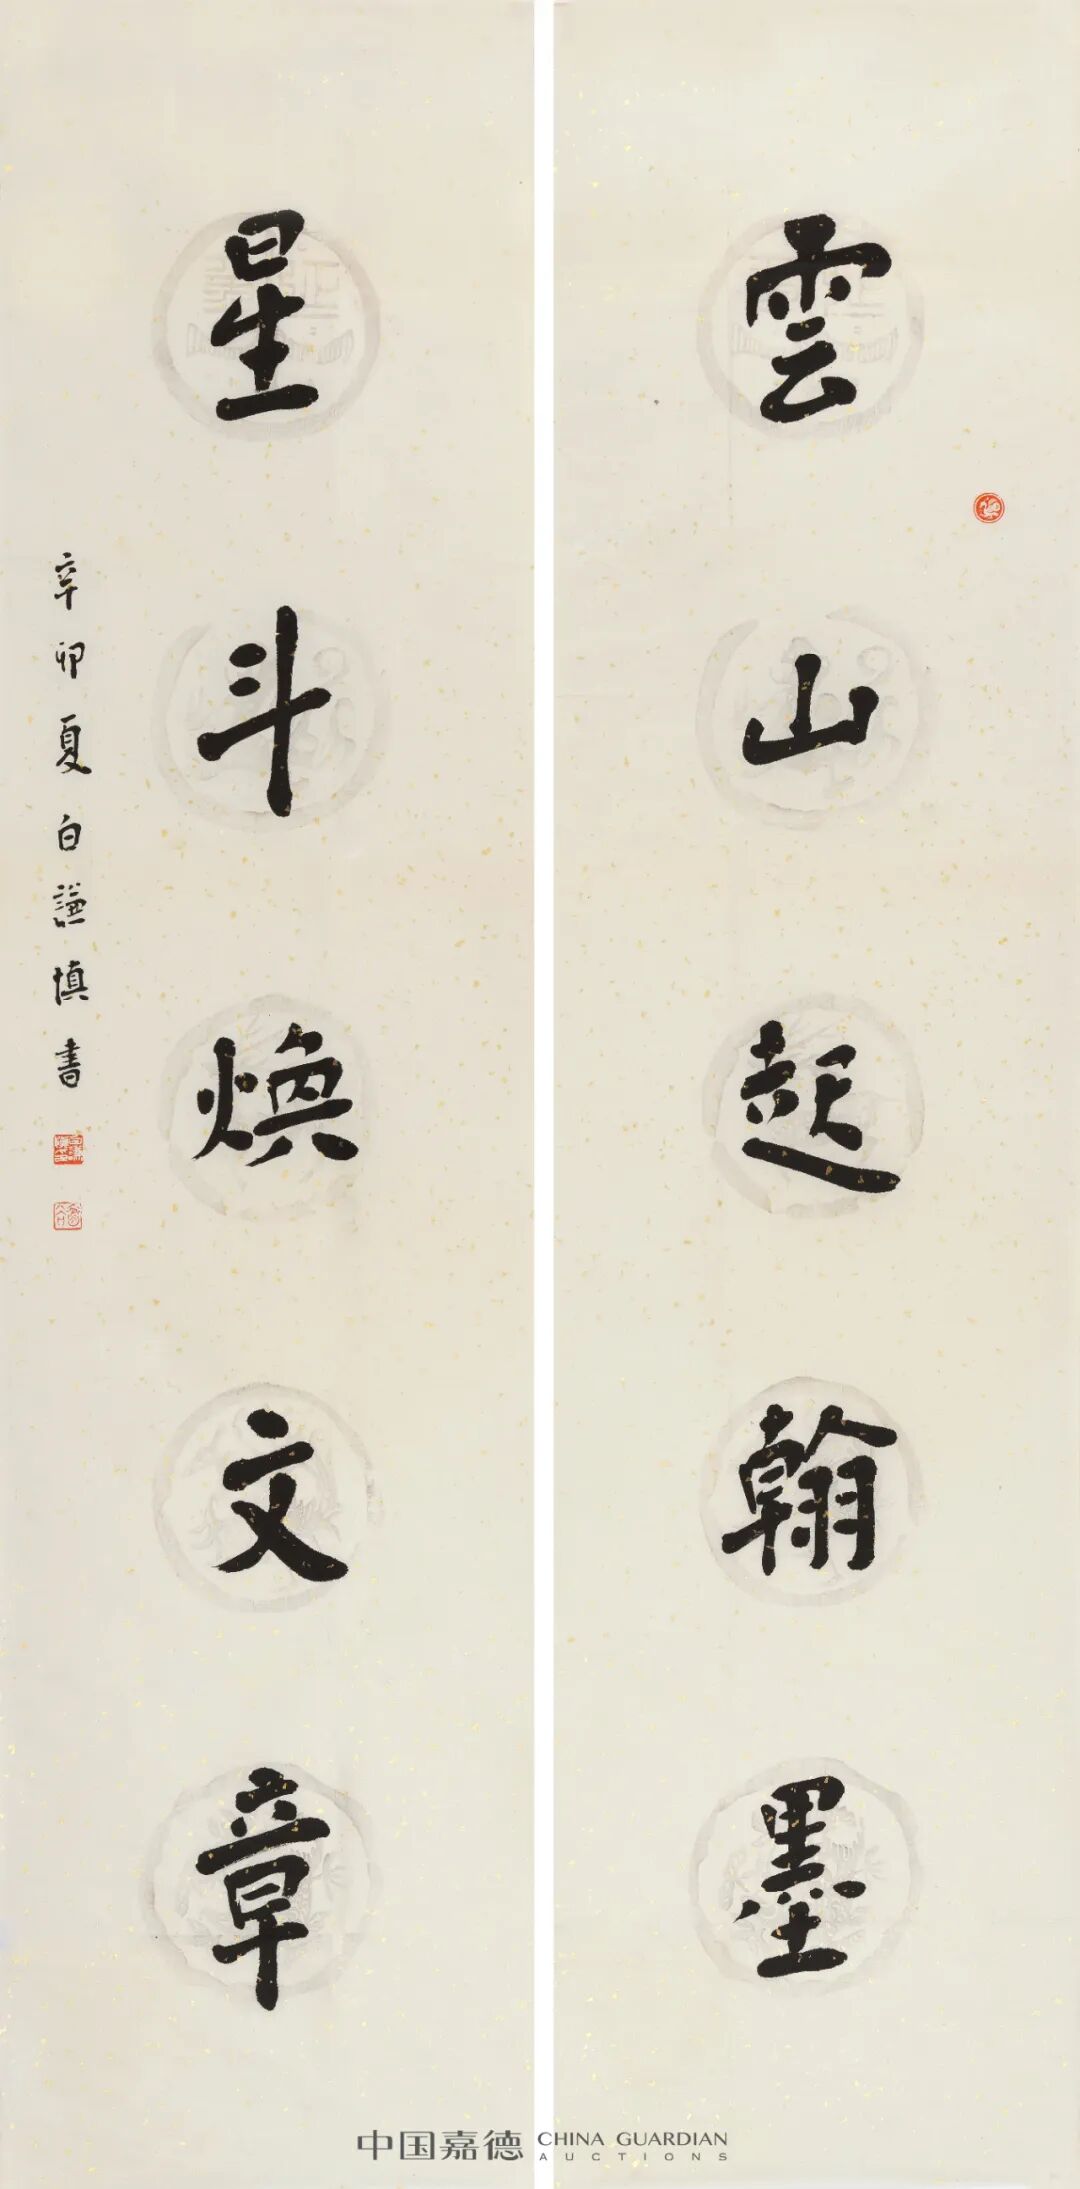 雲山起翰墨
星斗焕文章
辛卯夏白謙慎書
中国嘉德 CHINA GUARDIAN
AUCTIONS